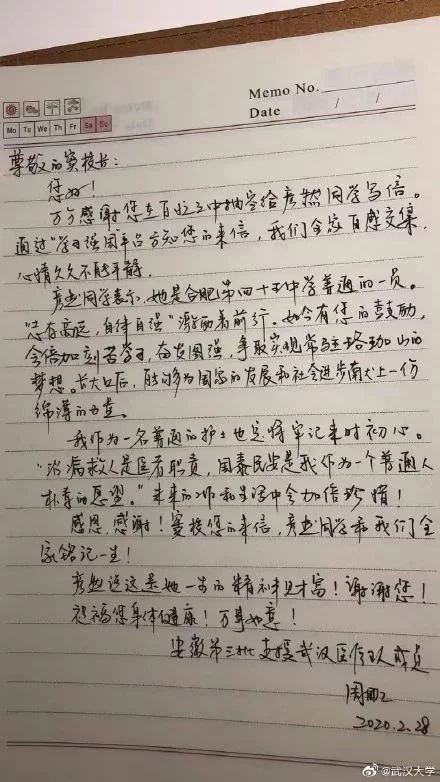 Memo No.
Date / /
Mo Tu We Th Fr Sa Su
尊敬的窦校长：
您好！
万分感谢您在百忙之中抽空给彦然同学写信。
通过“学习强国平台方知您的来信，我们全家百感交集，
心情久久不能平静。
彦然同学表示，她是合肥第四十五中学普通的一员。
“志存高远，自律自强”激励着前行。如今有您的鼓励，
会倍加刻苦学习，奋发图强，争取实现常驻珞珈山的
梦想。长大口后，能够为国家的发展和社会进步献上一份
绵薄的力量。
我作为一名普通的护士也定将牢记来时初心。
“治病救人是医者职责，国泰民安是我作为一个普通人
朴素的愿望。”未来的工作和生活中会加倍珍惜！
感恩，感谢！窦校您的来信，彦然同学和我们全
家铭记一生！
彦然说这是她一生的精神财富！谢谢您！
祝福您身体健康！万事如意！
安徽第三批支援武汉医疗队成员
2020.2.28
@武汉大学